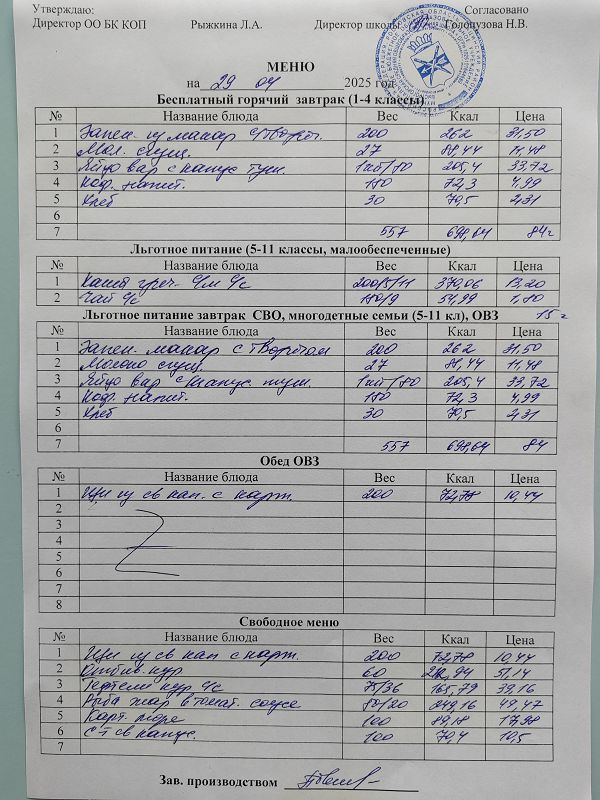 Утверждаю: Согласовано
Директор ОО БК КОП Рыжкина Л.А. Директор школы Голопузова Н.В.
МЕНЮ
на 29 04 2025 год
Бесплатный горячий завтрак (1-4 классы)
№ Название блюда Вес Ккал Цена
1 Запек. из макар с творог. 200 262 31,50
2 Мол. сгущ. 27 88,44 11,48
3 Яйцо вар с капус туш. 1шт/80 205,4 33,72
4 Коф. напит. 180 72,3 4,99
5 Хлеб 30 70,5 2,31
6
7 557 698,64 84 г
Льготное питание (5-11 классы, малообеспеченные)
№ Название блюда Вес Ккал Цена
1 Каша греч. 200/5/11 370,06 13,20
2 Чай с/с 180/9 54,99 1,80
Льготное питание завтрак СВО, многодетные семьи (5-11 кл), ОВЗ 15 г
№ Название блюда Вес Ккал Цена
1 Запек. макар с творогом 200 262 31,50
2 Молоко сгущ. 27 88,44 11,48
3 Яйцо вар с капус туш. 1шт/80 205,4 33,72
4 Коф. напит. 180 72,3 4,99
5 Хлеб 30 70,5 2,31
6
7 557 698,64 84
Обед ОВЗ
№ Название блюда Вес Ккал Цена
1 Щи из св кап. с карт. 200 72,78 10,44
2
3
4
5
6
7
8
Свободное меню
№ Название блюда Вес Ккал Цена
1 Щи из св кап с карт. 200 72,78 10,44
2 Отбив. кур 60 51,14
3 Тефтели кур с/с 75/36 165,79 39,16
4 Рыба жар в томат. соусе 80/20 249,16 49,47
5 Карт. пюре 100 89,18 17,98
6 С-т св капус. 100 70,4 10,5
7
Зав. производством